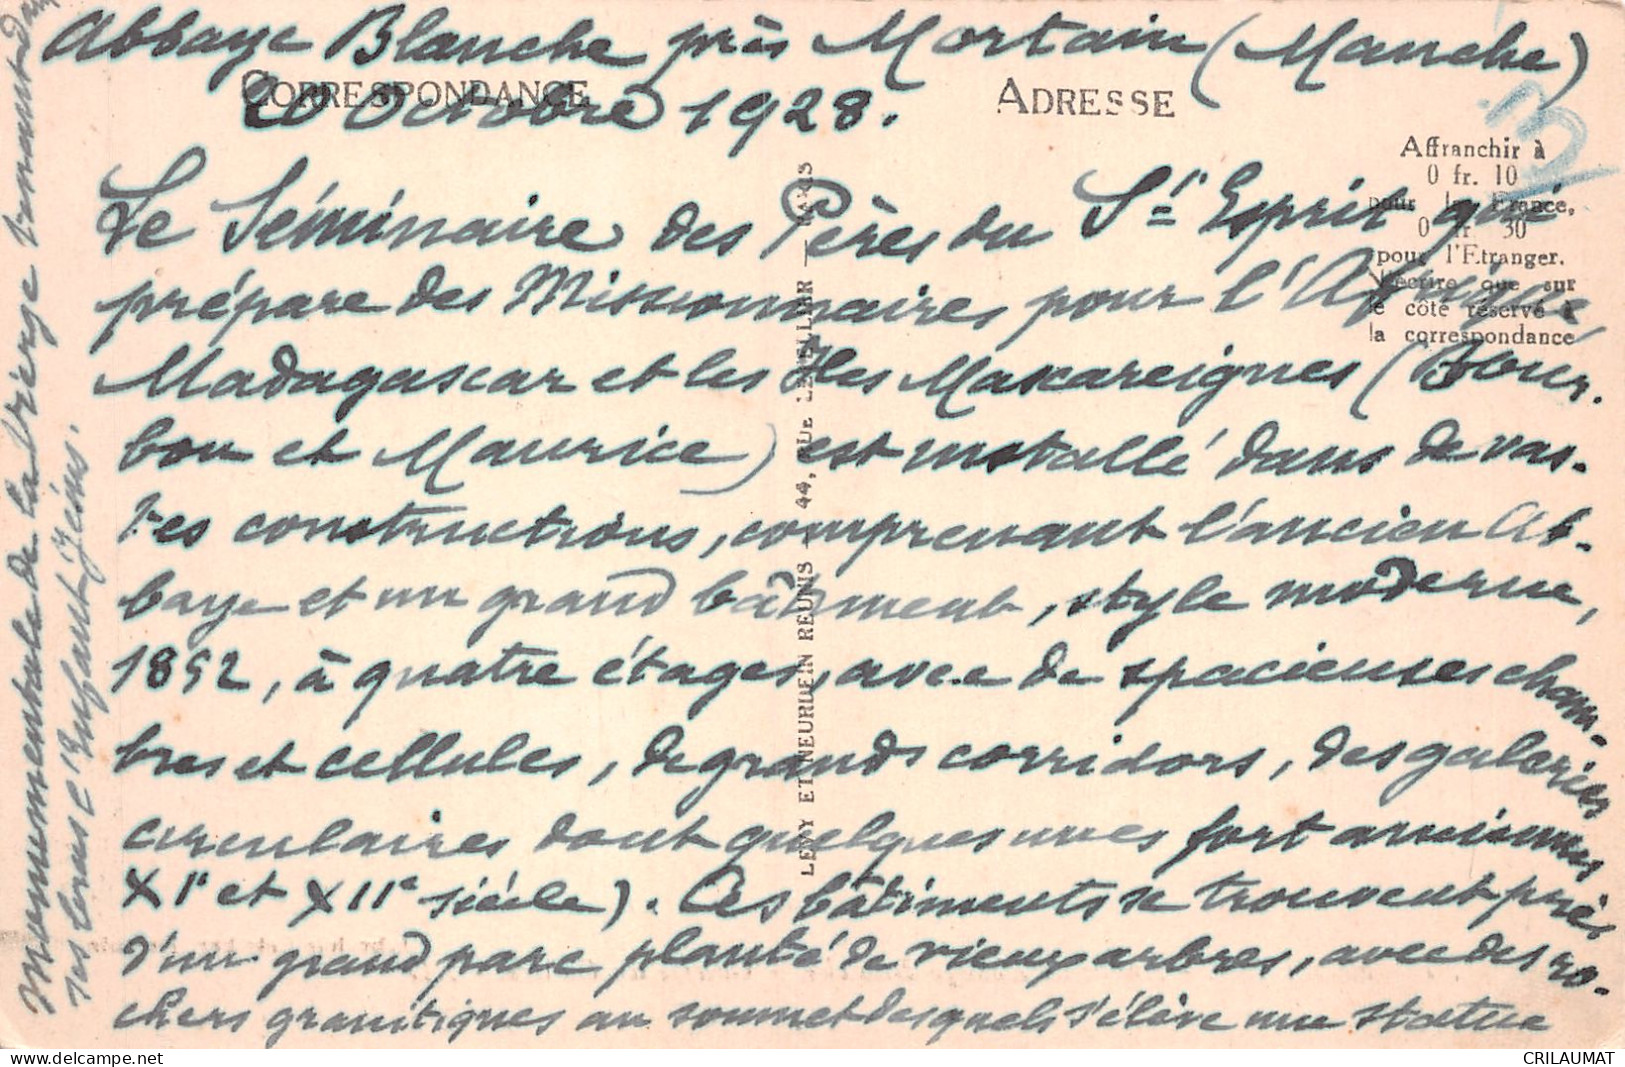 Abbaye Blanche près Mortain (Manche)
CORRESPONDANCE
20 Octobre 1928.
ADRESSE
Affranchir à
0 fr. 10
pour la France,
0 fr. 30
pour l'Etranger.
N'ecrire que sur
le côté réservé à
la correspondance
Le Séminaire des Pères du St Esprit qui
prépare des Missionnaires pour l'Afrique
Madagascar et les Iles Mascareignes (Bour-
bon et Maurice) est installé dans de vas-
tes constructions, comprenant l'ancien Ab-
baye et un grand bâtiment, style moderne,
1892, à quatre étages, avec de spacieuses cham-
bres et cellules, de grands corridors, des galeries
circulaires dont quelques unes fort anciennes
XIe et XIIe siècle). Ces bâtiments se trouvent près
d'un grand parc planté de vieux arbres, avec des ro-
chers granitiques au sommet desquels s'élève une statue
monumentale de la Vierge tenant dans
ses bras l'Enfant Jésus.
LEVY ET NEURDEIN REUNIS — 44, RUE LETELLIER — PARIS
CRILAUMAT